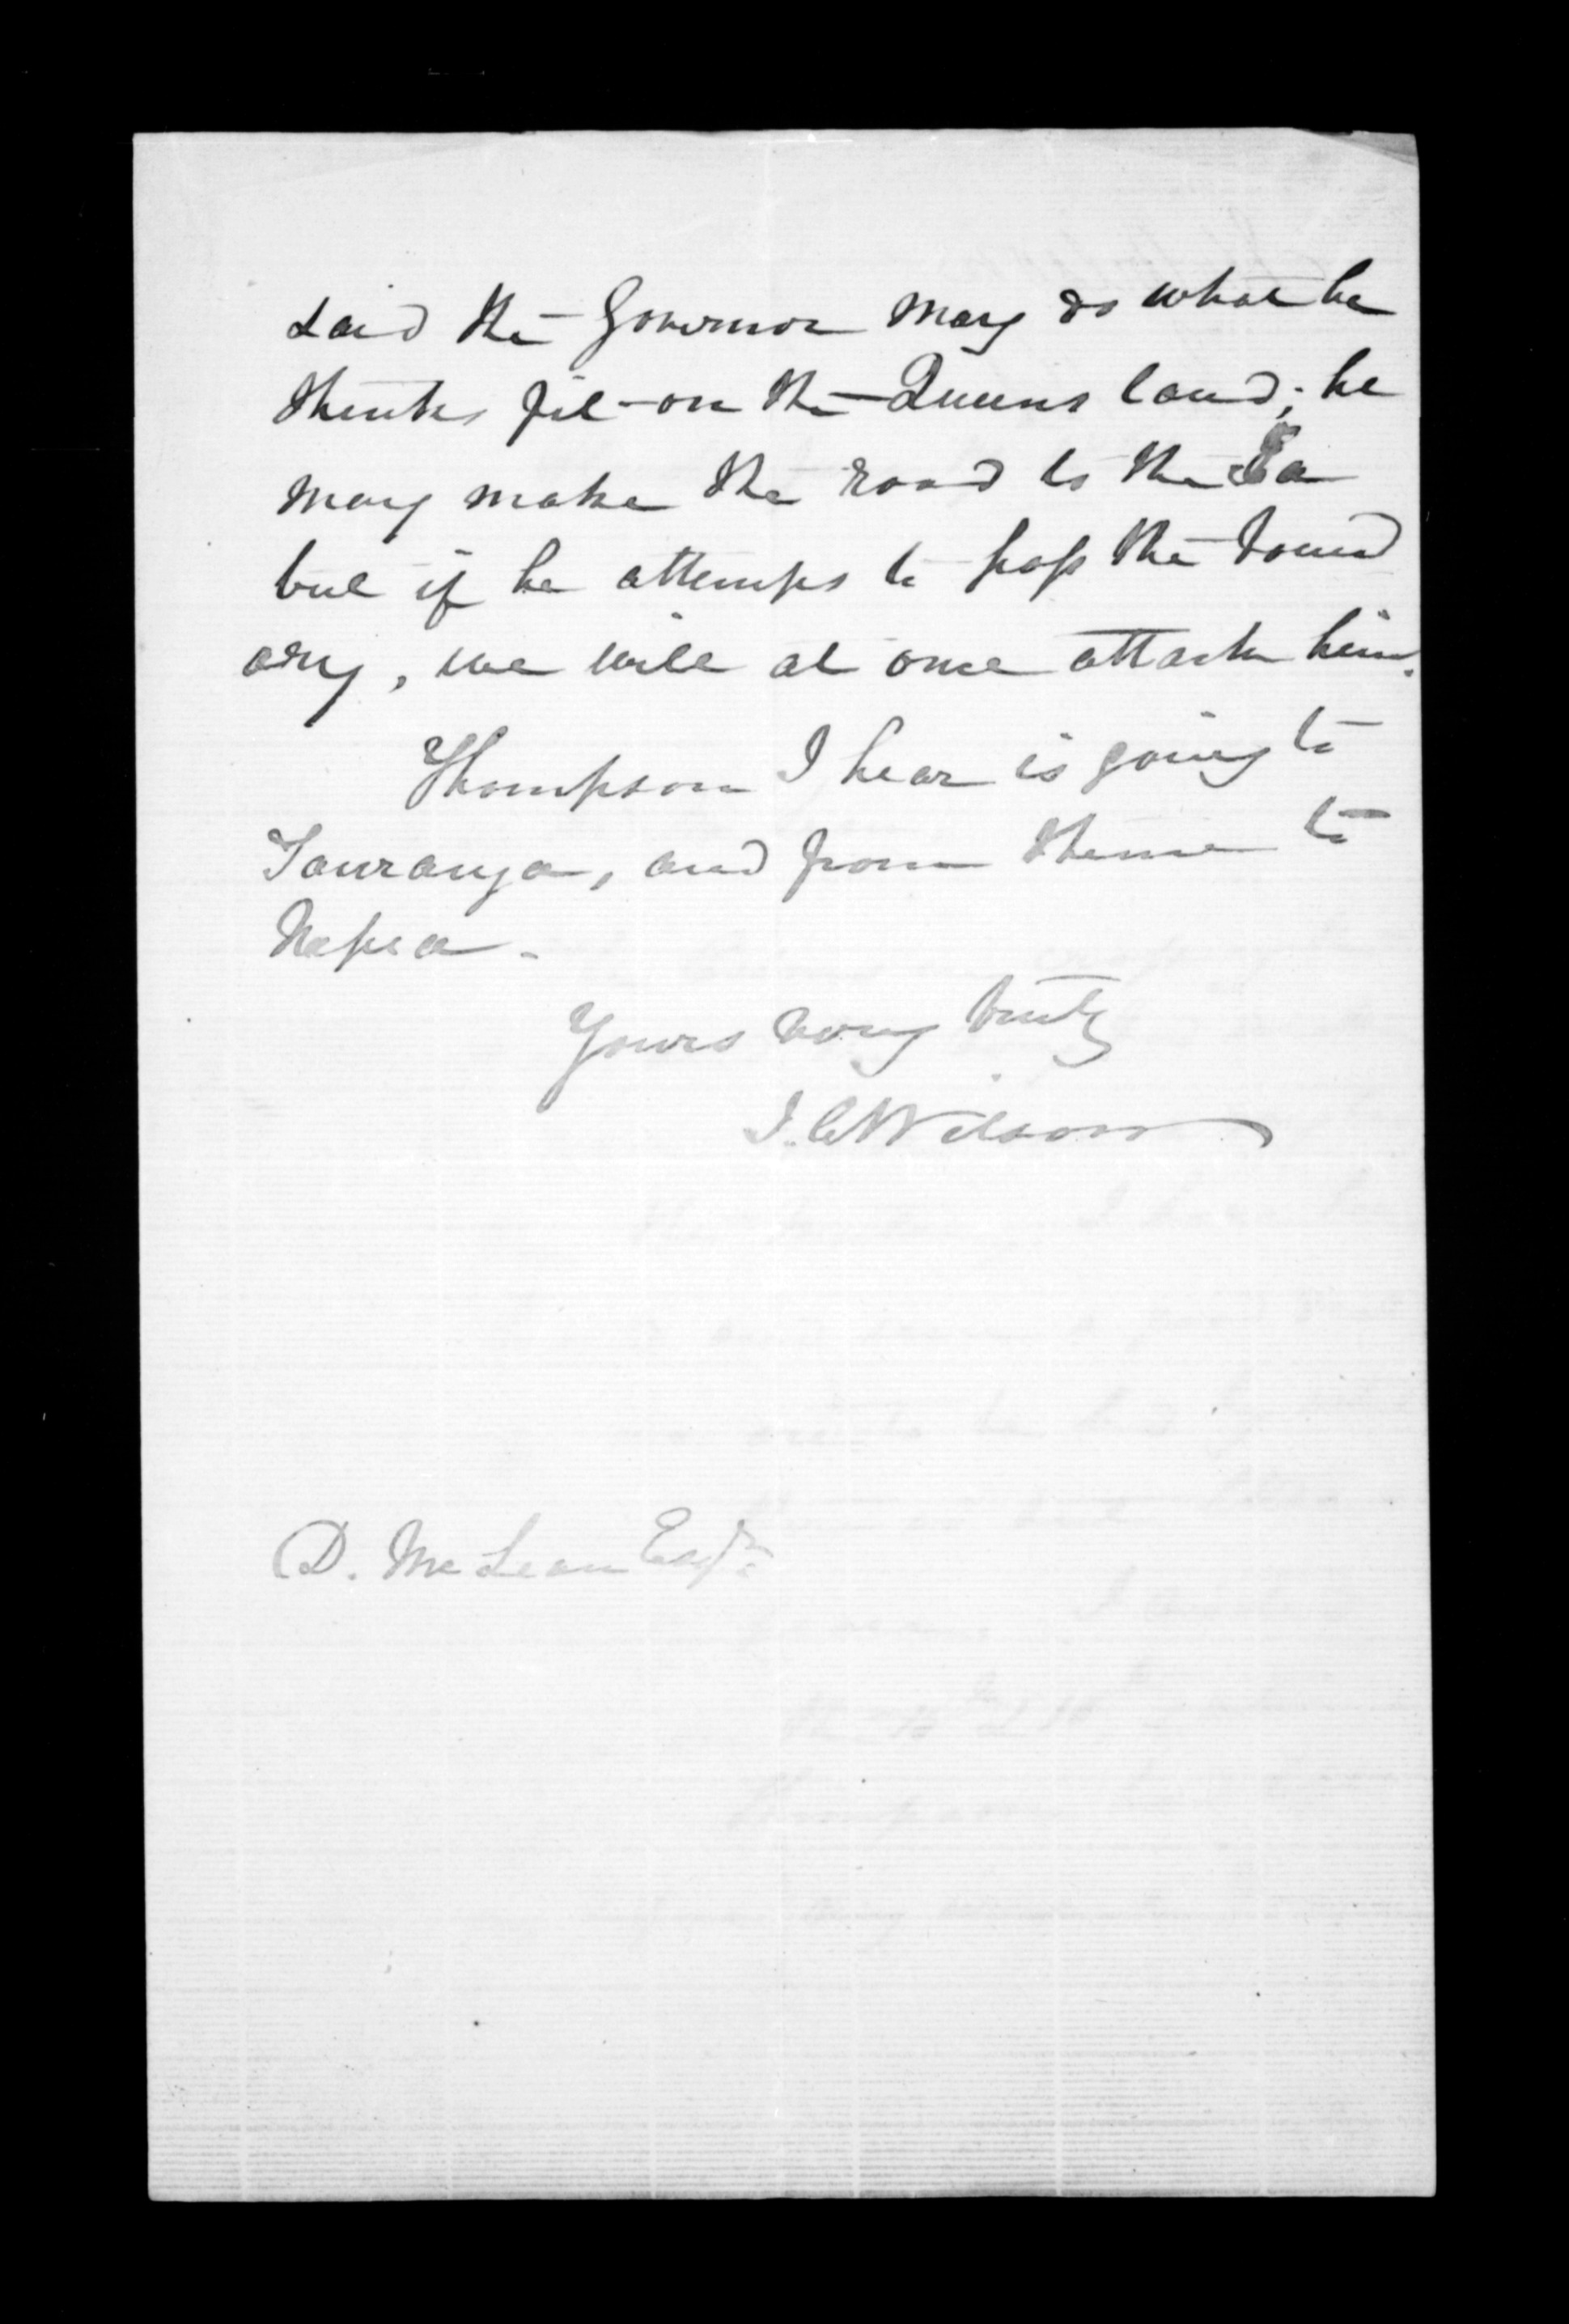 said the Governor may do what he
thinks fit on the Queens land; he
may make the road to the Ia
but if he attemps to pass the bound
ary, we will at once attack him.
Thompson I hear is going to
Tauranga, and from thence to
Napia.
Yours very truly
J. C Wilson
D. McLean Esqr.